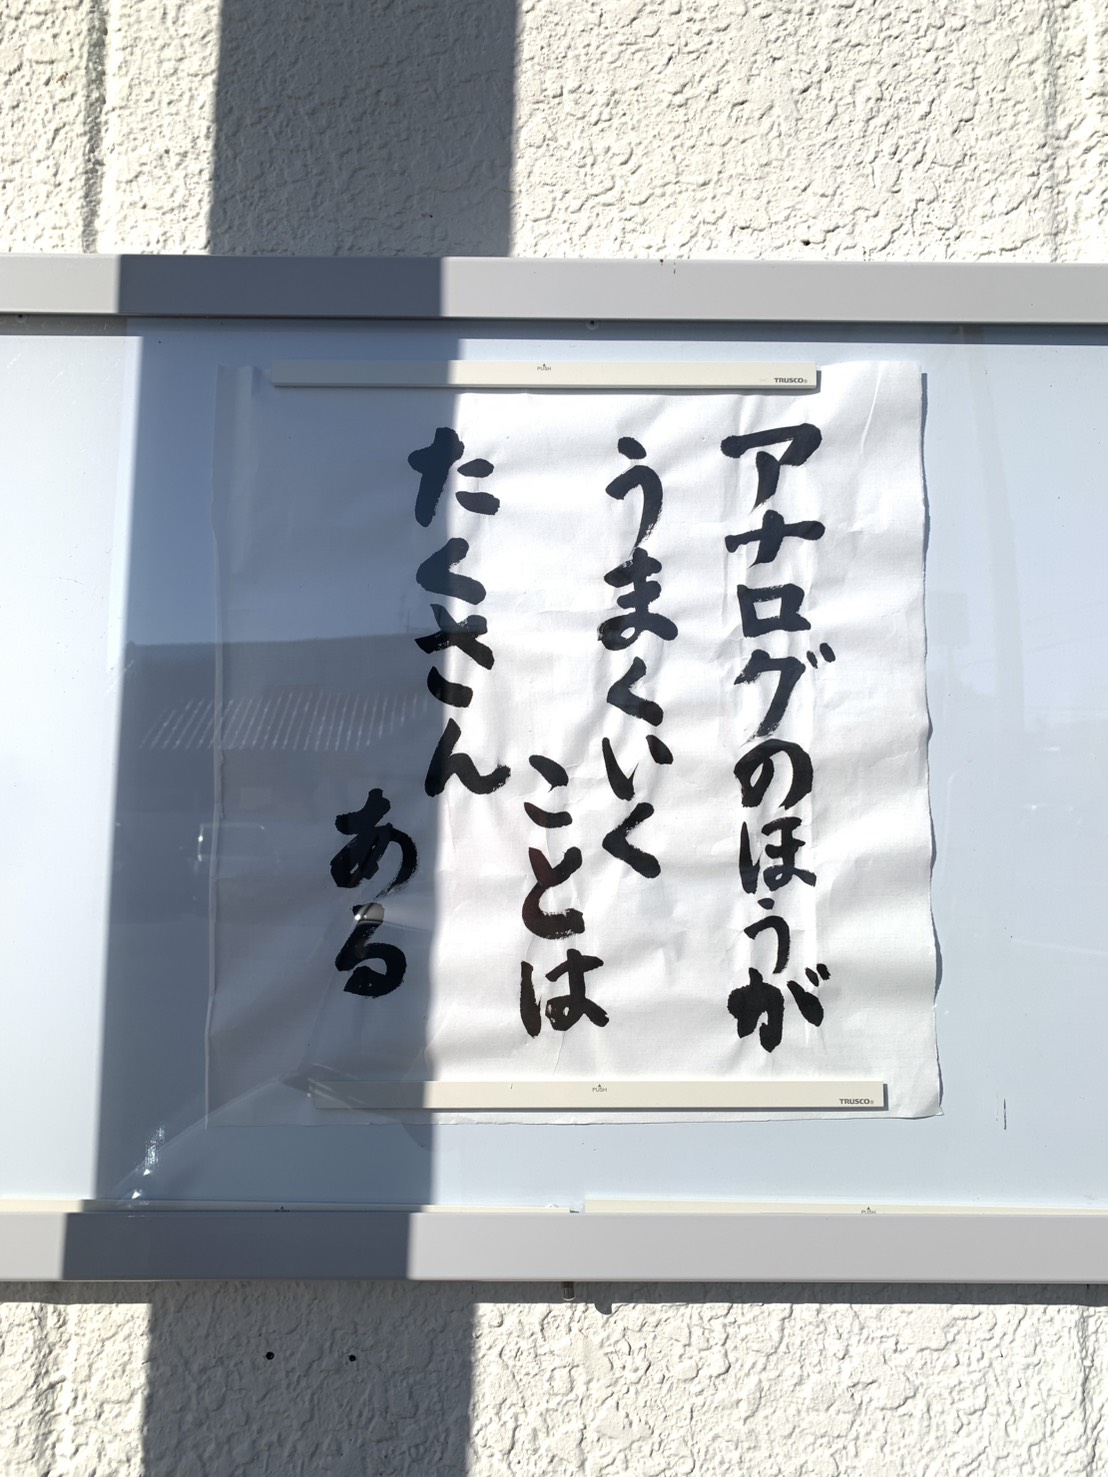 アナログのほうが
うまくいく
ことは
たくさん
ある
PUSH
TRUSCO®
PUSH
TRUSCO®